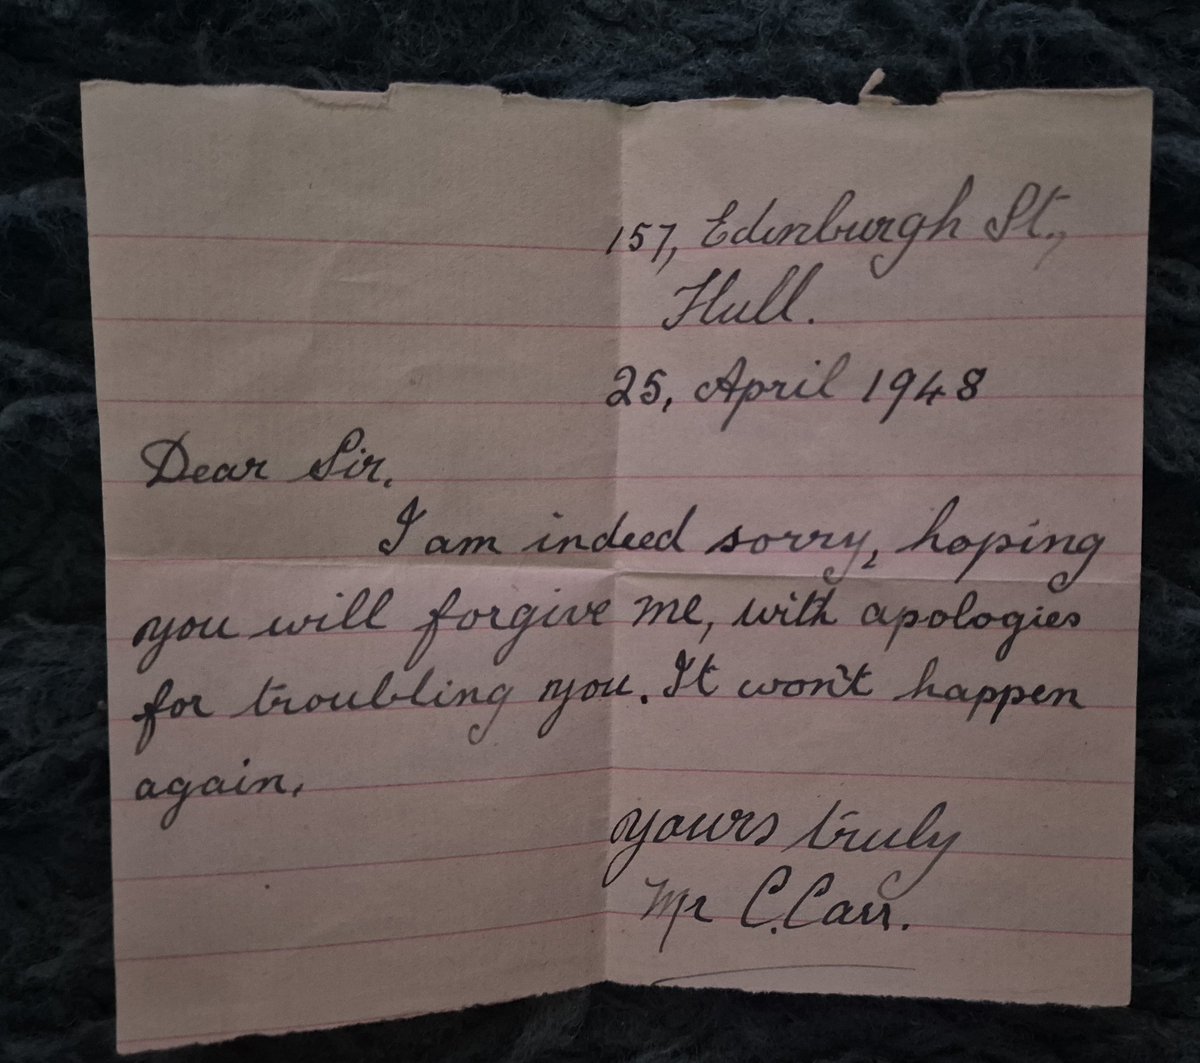 157, Edinburgh St.,
Hull.
25, April 1948
Dear Sir,
I am indeed sorry, hoping
you will forgive me, with apologies
for troubling you. It won't happen
again,
yours truly
Mr C. Carr.